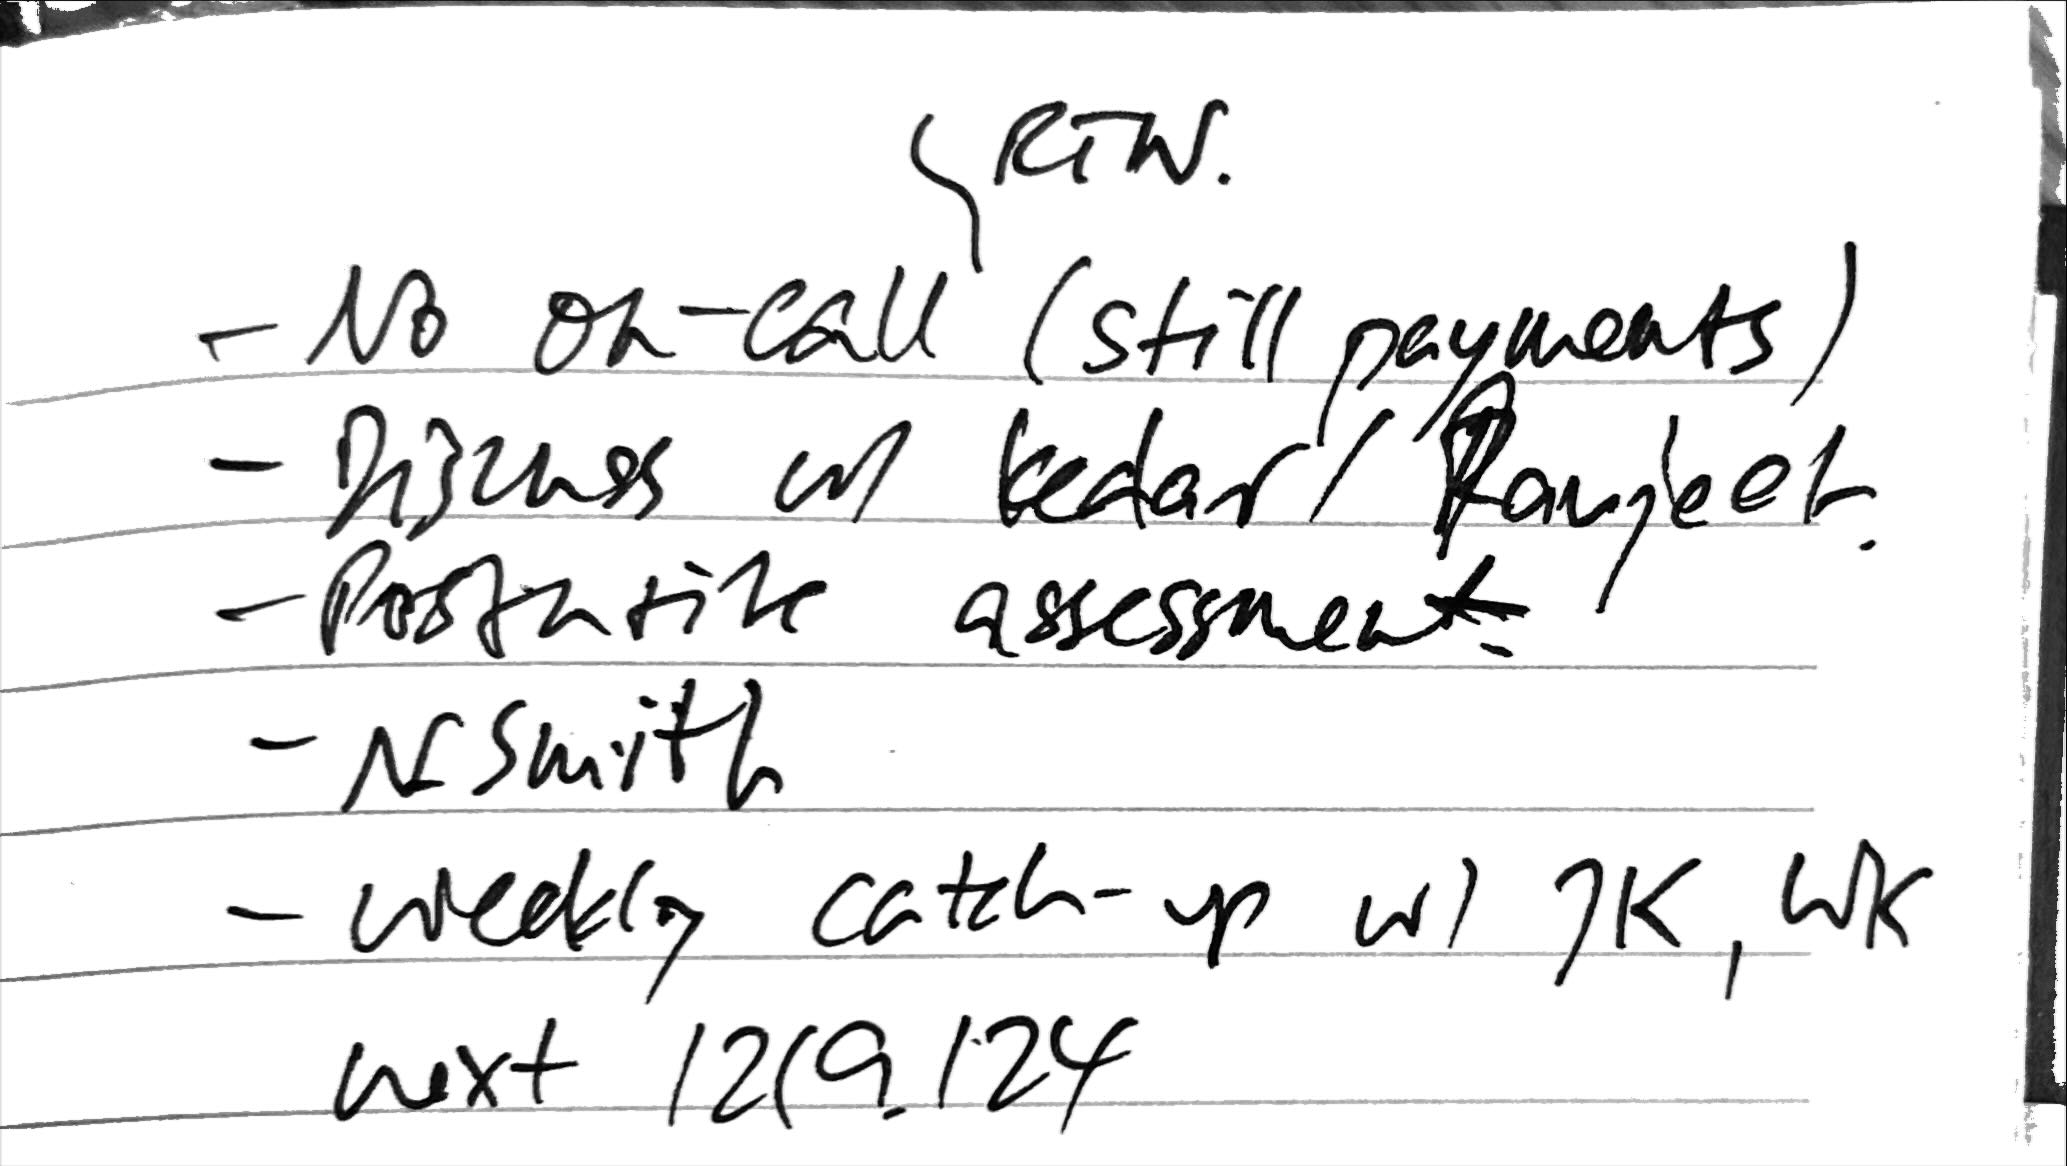 RTW.
- No on-call (still payments)
- Discuss w/ kedar / Ranjeet.
- Posturite assessment
- N Smith
- Weekly catch-up w/ JK, WK
next 12/9/24